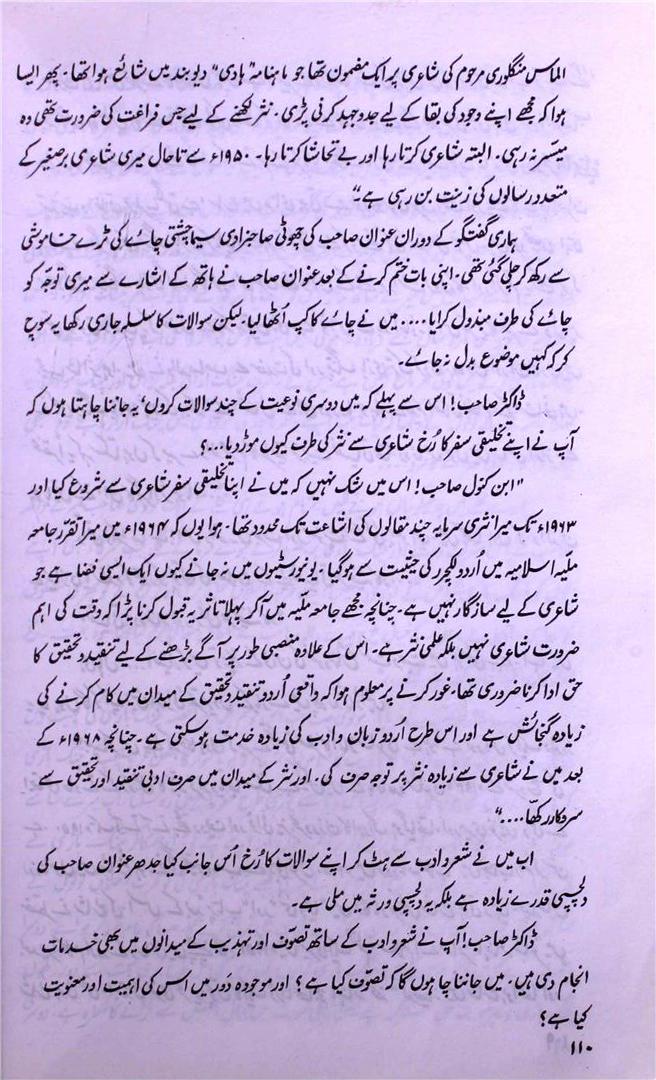 الماس منگلوری مرحوم کی شاعری پر ایک مضمون تھا جو ماہنامہ "ہادی" دیوبند میں شائع ہوا تھا۔ پھر ایسا
ہوا کہ مجھے اپنے وجود کی بقا کے لیے جدوجہد کرنی پڑی۔ نثر لکھنے کے لیے جس فراغت کی ضرورت تھی وہ
میسّر نہ رہی۔ البتہ شاعری کرتا رہا اور بے تحاشا کرتا رہا۔ ۱۹۵۰ء سے تاحال میری شاعری برصغیر کے
متعدد رسالوں کی زینت بن رہی ہے۔"
ہماری گفتگو کے دوران عنوان صاحب کی چھوٹی صاحبزادی سیما چشتی چائے کی ٹرے خاموشی
سے رکھ کر چلی گئی تھی۔ اپنی بات ختم کرنے کے بعد عنوان صاحب نے ہاتھ کے اشارے سے میری توجّہ کو
چائے کی طرف مبذول کرایا.... میں نے چائے کا کپ اُٹھا لیا۔ لیکن سوالات کا سلسلہ جاری رکھا یہ سوچ
کر کہ کہیں موضوع بدل نہ جائے۔
ڈاکٹر صاحب! اس سے پہلے کہ میں دوسری نوعیت کے چند سوالات کروں، یہ جاننا چاہتا ہوں کہ
آپ نے اپنے تخلیقی سفر کا رُخ شاعری سے نثر کی طرف کیوں موڑ دیا...؟
"ابن کنول صاحب! اس میں شک نہیں کہ میں نے اپنا تخلیقی سفر شاعری سے شروع کیا اور
۱۹۶۳ء تک میرا نثری سرمایہ چند مقالوں کی اشاعت تک محدود تھا۔ ہوا یوں کہ ۱۹۶۴ء میں میرا تقرّر جامعہ
ملّیہ اسلامیہ میں اُردو لکچرر کی حیثیت سے ہو گیا۔ یونیورسٹیوں میں نہ جانے کیوں ایک ایسی فضا ہے جو
شاعری کے لیے سازگار نہیں ہے۔ چنانچہ مجھے جامعہ ملّیہ میں آ کر پہلا تاثر یہ قبول کرنا پڑا کہ وقت کی اہم
ضرورت شاعری نہیں بلکہ علمی نثر ہے۔ اس کے علاوہ منصبی طور پر آگے بڑھنے کے لیے تنقید و تحقیق کا
حق ادا کرنا ضروری تھا۔ غور کرنے پر معلوم ہوا کہ واقعی اُردو تنقید و تحقیق کے میدان میں کام کرنے کی
زیادہ گنجائش ہے اور اس طرح اُردو زبان و ادب کی زیادہ خدمت ہو سکتی ہے۔ چنانچہ ۱۹۶۸ء کے
بعد میں نے شاعری سے زیادہ نثر پر توجہ صرف کی۔ اور نثر کے میدان میں صرف ادبی تنقید اور تحقیق سے
سروکار رکھا...."
اب میں نے شعر و ادب سے ہٹ کر اپنے سوالات کا رُخ اُس جانب کیا جدھر عنوان صاحب کی
دلچسپی قدرے زیادہ ہے بلکہ یہ دلچسپی ورثہ میں ملی ہے۔
ڈاکٹر صاحب! آپ نے شعر و ادب کے ساتھ تصوّف اور تہذیب کے میدانوں میں بھی خدمات
انجام دی ہیں۔ میں جاننا چاہوں گا کہ تصوّف کیا ہے؟ اور موجودہ دَور میں اس کی اہمیت اور معنویت
کیا ہے؟
۱۱۰